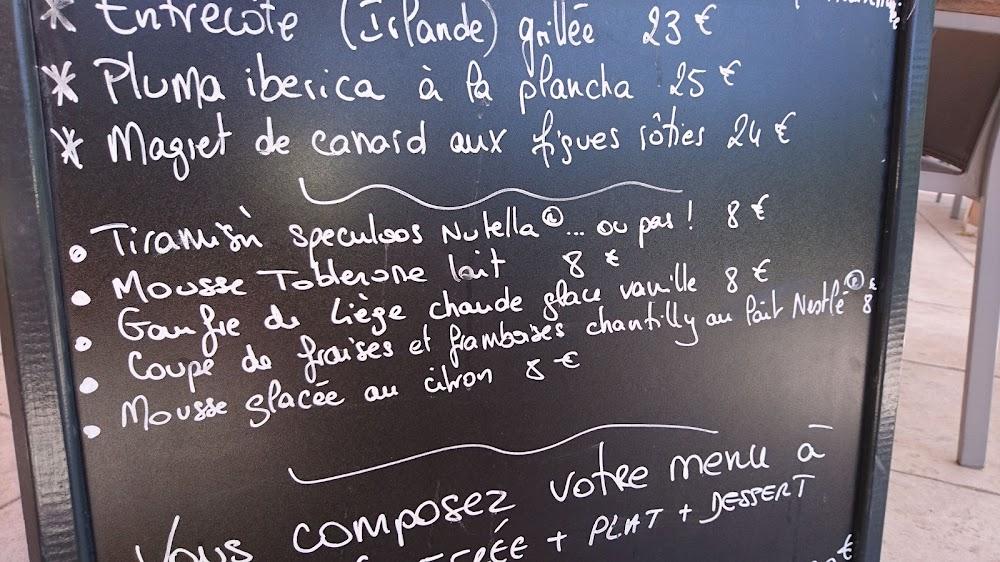 * Entrecôte (Irlande) grillée 23 €
* Pluma iberica à la plancha 25 €
* Magret de canard aux figues rôties 24 €
• Tiramisù speculoos Nutella®... ou pas ! 8 €
• Mousse Toblerone lait 8 €
• Gaufre de Liège chaude glace vanille 8 €
• Coupe de fraises et framboises chantilly au lait Nestlé® 8
• Mousse glacée au citron 8 €
Vous composez votre menu à
ENTRÉE + PLAT + DESSERT
€